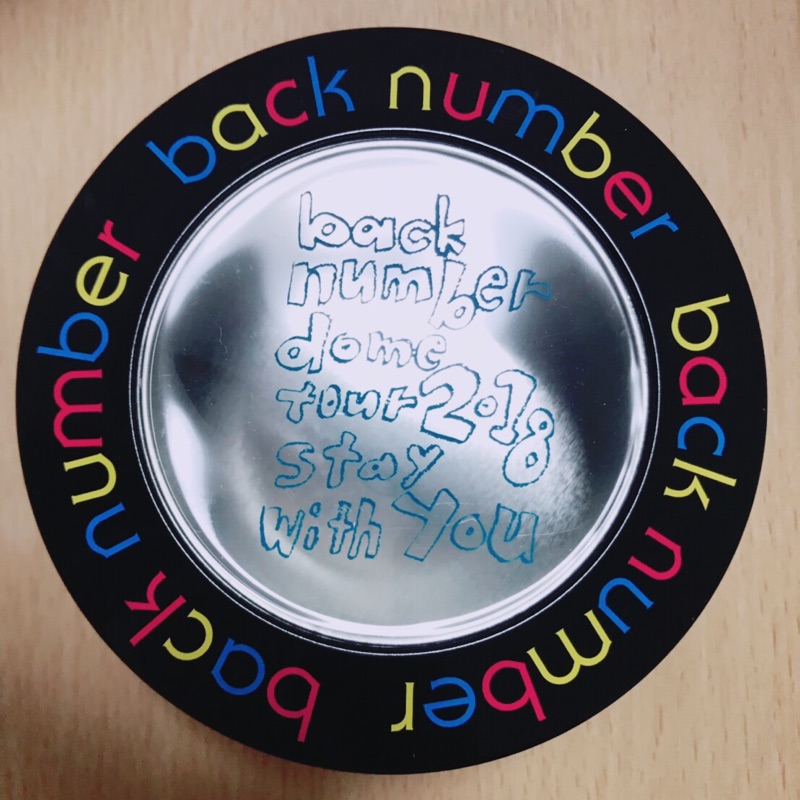 back number
back number
back number
back
number
dome
tour 2018
stay
with You